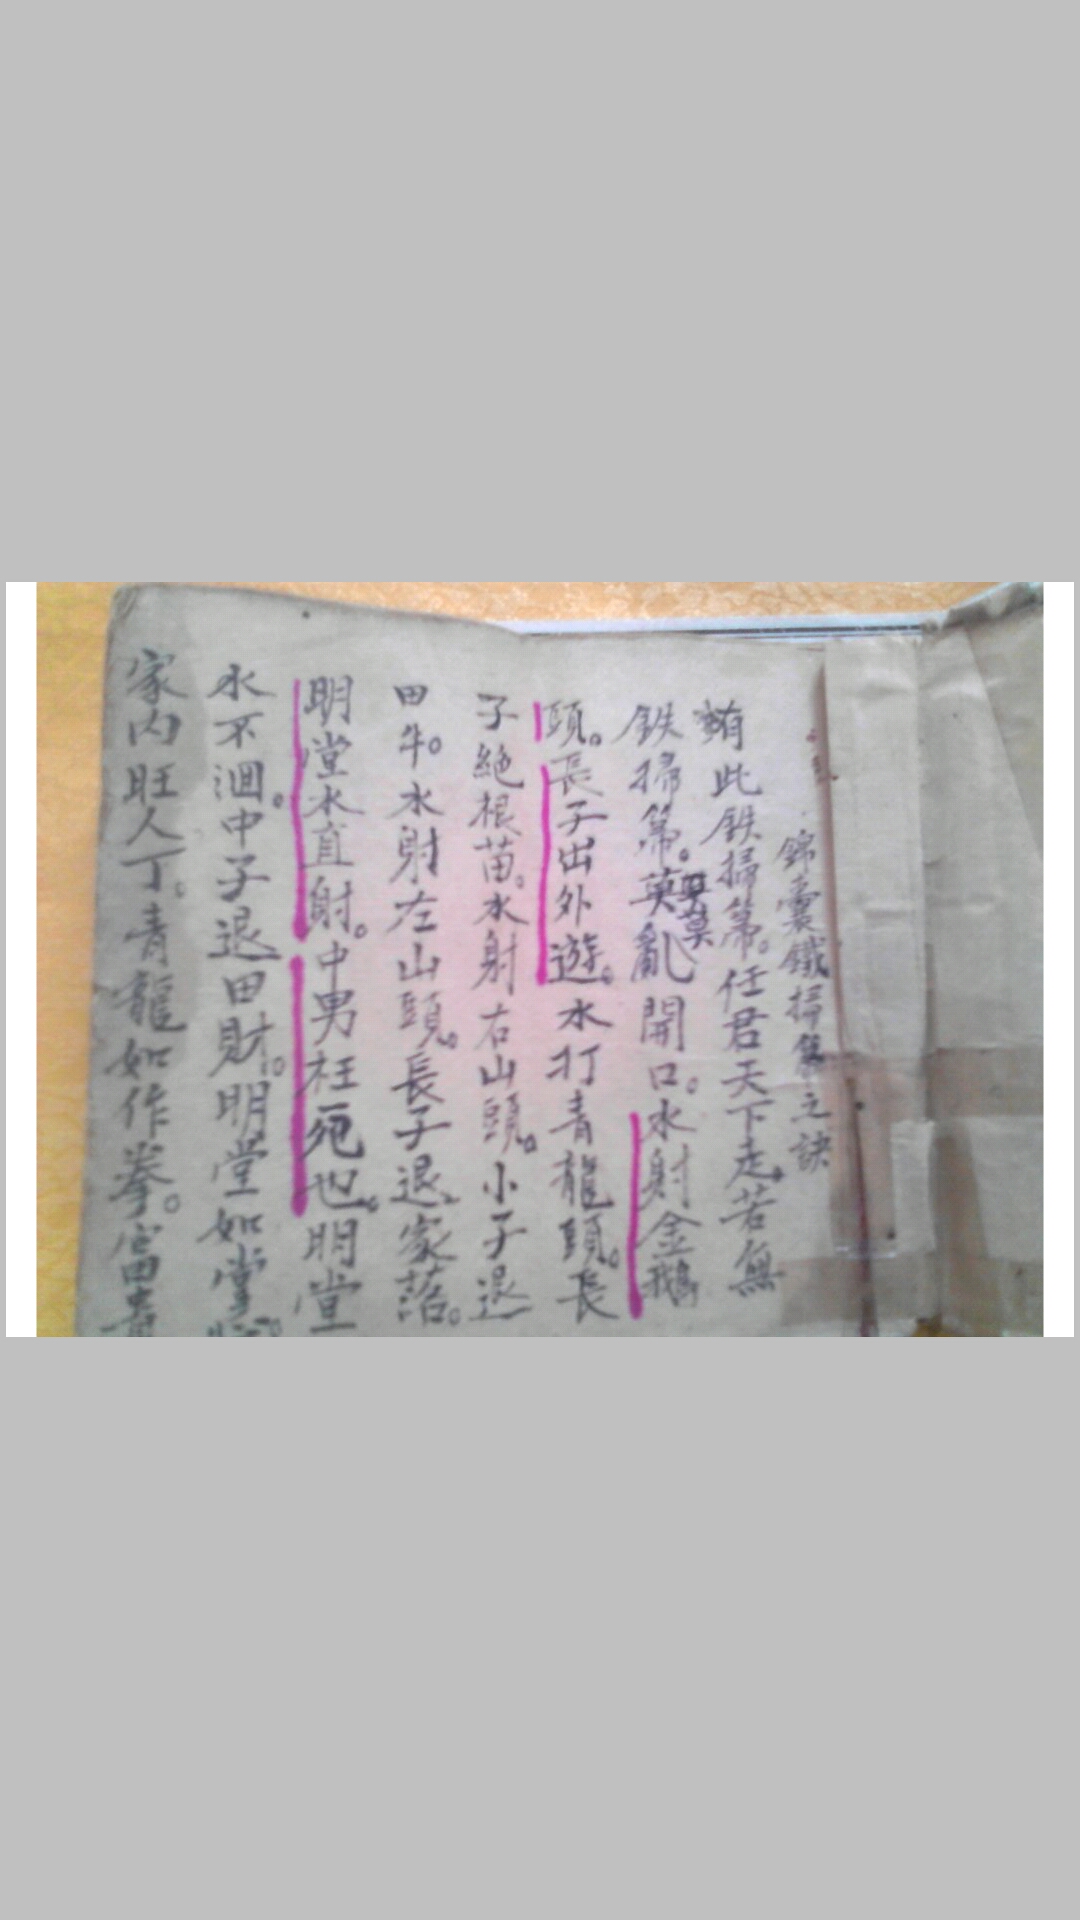 錦囊鐵掃箒之訣
有此鉄掃箒。任君天下走。若無
鉄掃箒。英亂開口。水射金鵝
莫
頭。長子出外遊。水打青龍頭。長
子絶根苗。水射右山頭。小子退
田牛。水射左山頭。長子退家落。
明堂水直射。中男枉死也。明堂
水不洄。中子退田財。明堂如掌心。
家内旺人丁。青龍如作拳。富貴